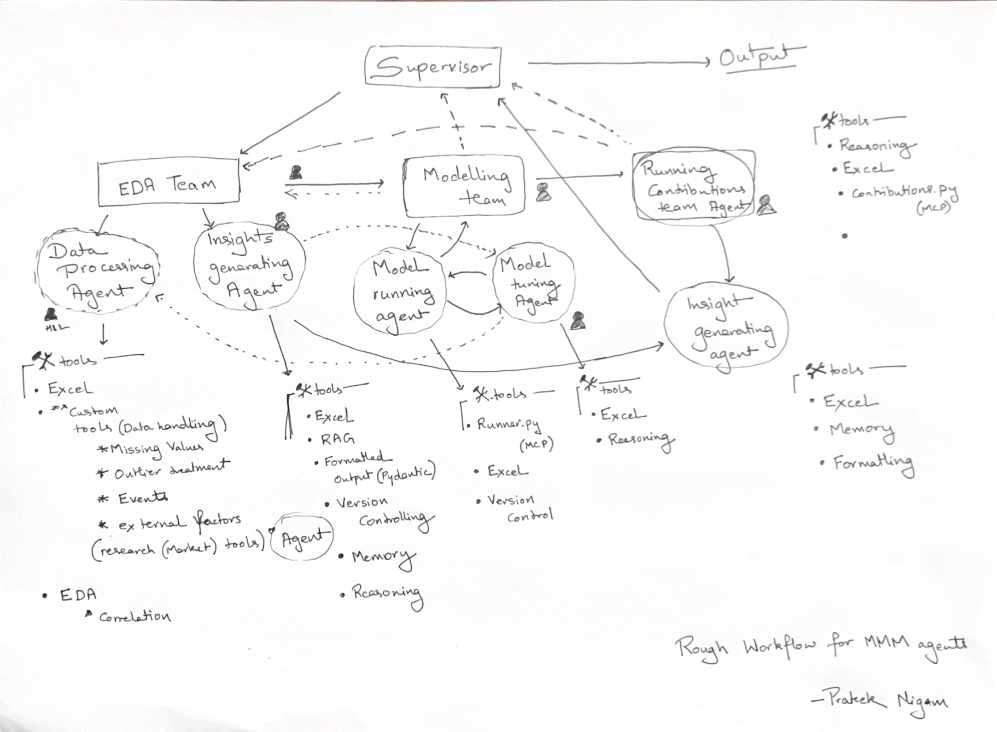 Supervisor
Output
EDA Team
Modelling
team
Running
Contributions
team Agent
tools
• Reasoning
• Excel
• Contributions.py
(MCP)
Data
Processing
Agent
HIL
Insights
generating
Agent
Model
running
agent
Model
tuning
Agent
Insight
generating
agent
tools
• Excel
• ** Custom
tools (Data handling)
* Missing Values
* Outlier treatment
* Events
* external factors
(research (Market) tools)
* Agent
• EDA
* Correlation
tools
• Excel
• RAG
• Formatted
output (Pydantic)
• Version
Controlling
• Memory
• Reasoning
tools
• Runner.py
(MCP)
• Excel
• Version
Control
tools
• Excel
• Reasoning
tools
• Excel
• Memory
• Formatting
Rough Workflow for MMM agents
- Prateek Nigam